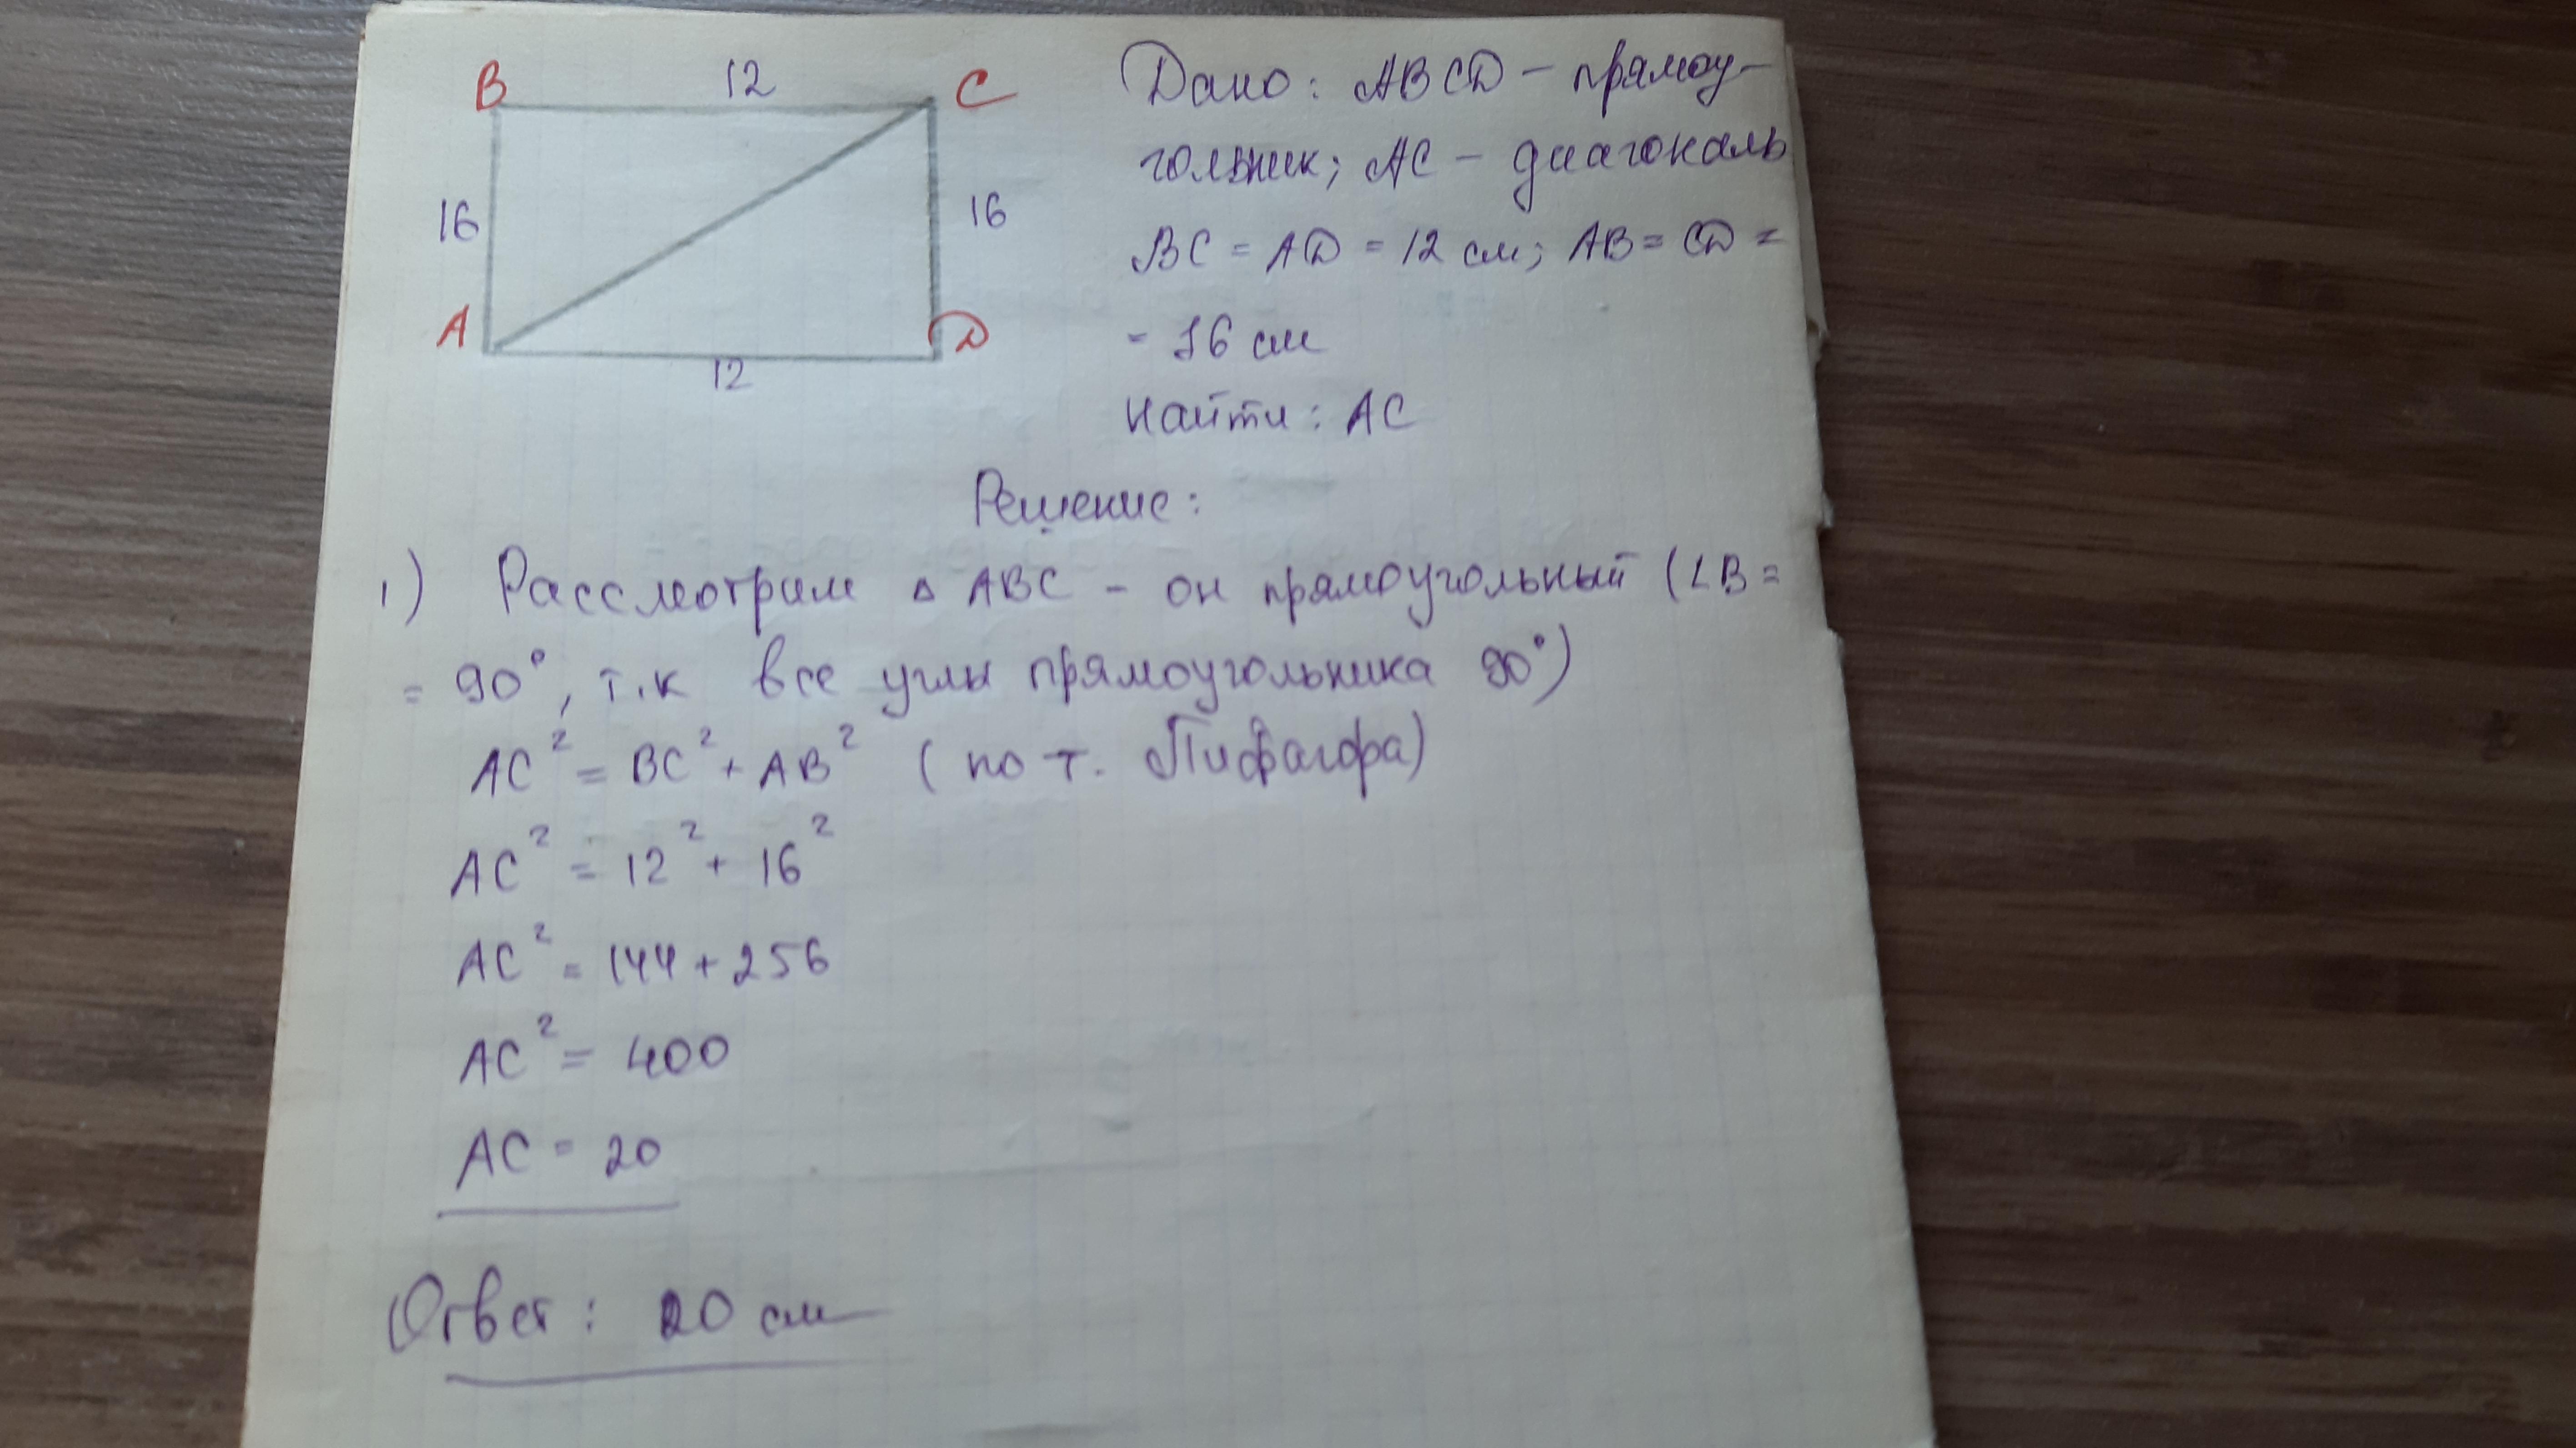 B 12 C
16 16
A D
12
Дано: ABCD – прямоу-
гольник; AC – диагональ
BC = AD = 12 см; AB = CD =
= 16 см
Найти: AC
Решение:
1) Рассмотрим △ ABC – он прямоугольный (∠B =
= 90°, т.к все углы прямоугольника 90°)
AC² = BC² + AB² (по т. Пифагора)
AC² = 12² + 16²
AC² = 144 + 256
AC² = 400
AC = 20
Ответ: 20 см